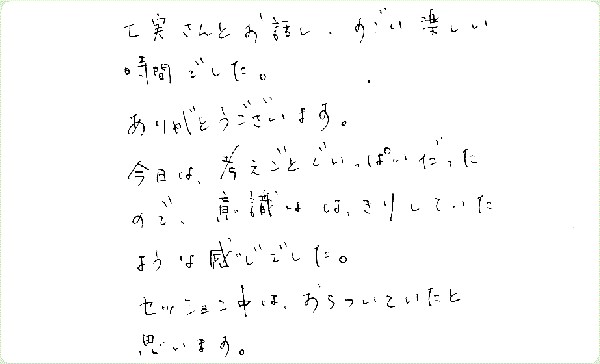 実さんとお話し、すごい楽しい
時間でした。
ありがとうございます。
今日は、考えごとでいっぱいだった
ので、意識ははっきりしていた
ような感じでした。
セッション中は、おちついていたと
思います。